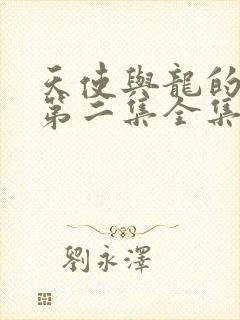 天使與龍的
第二集全集
劉永澤